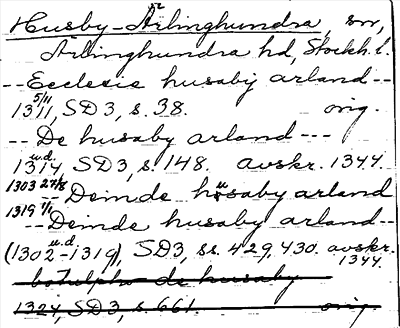 Husby-Ärlinghundra, sn,
Ärlinghundra hd, Stockh. l.
--Ecclesie husaby arland--
13 5/11 11, SD3, s. 38. orig.
--De husaby arland---
u.d.
1314, SD3, s. 148. avskr. 1344.
1303 27/8 --Deinde husaby arland
1319 7/1 --Deinde husaby arland--
(1302-u.d. 1319), SD3, ss. 429, 430. avskr. 1344.
botulpho de husaby
1324, SD3, s. 661. orig.